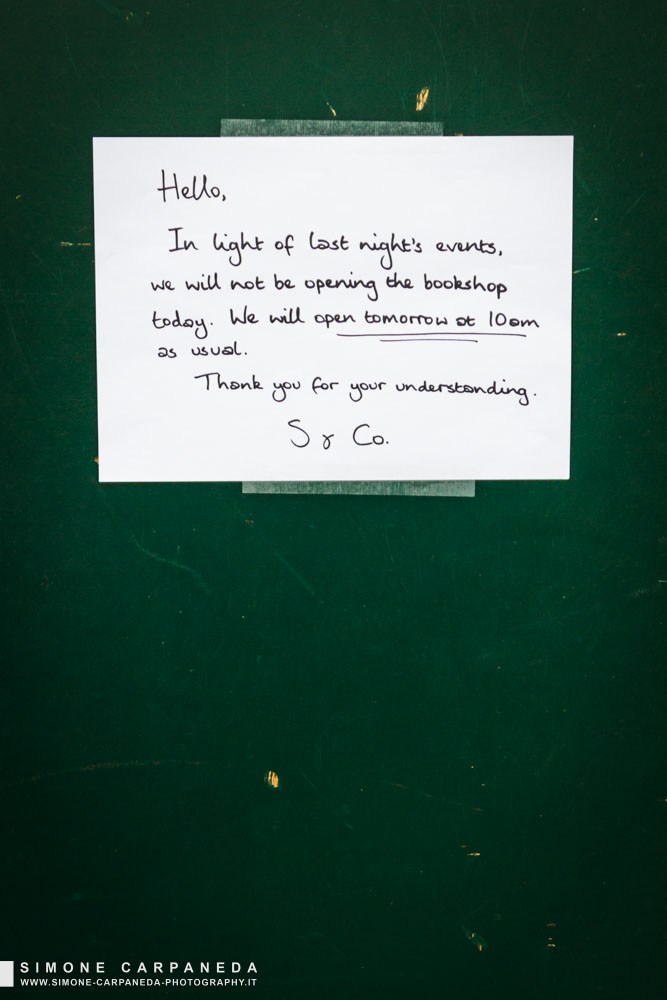 Hello,
In light of last night's events,
we will not be opening the bookshop
today. We will open tomorrow at 10am
as usual.
Thank you for your understanding.
S & Co.
SIMONE CARPANEDA
WWW.SIMONE-CARPANEDA-PHOTOGRAPHY.IT